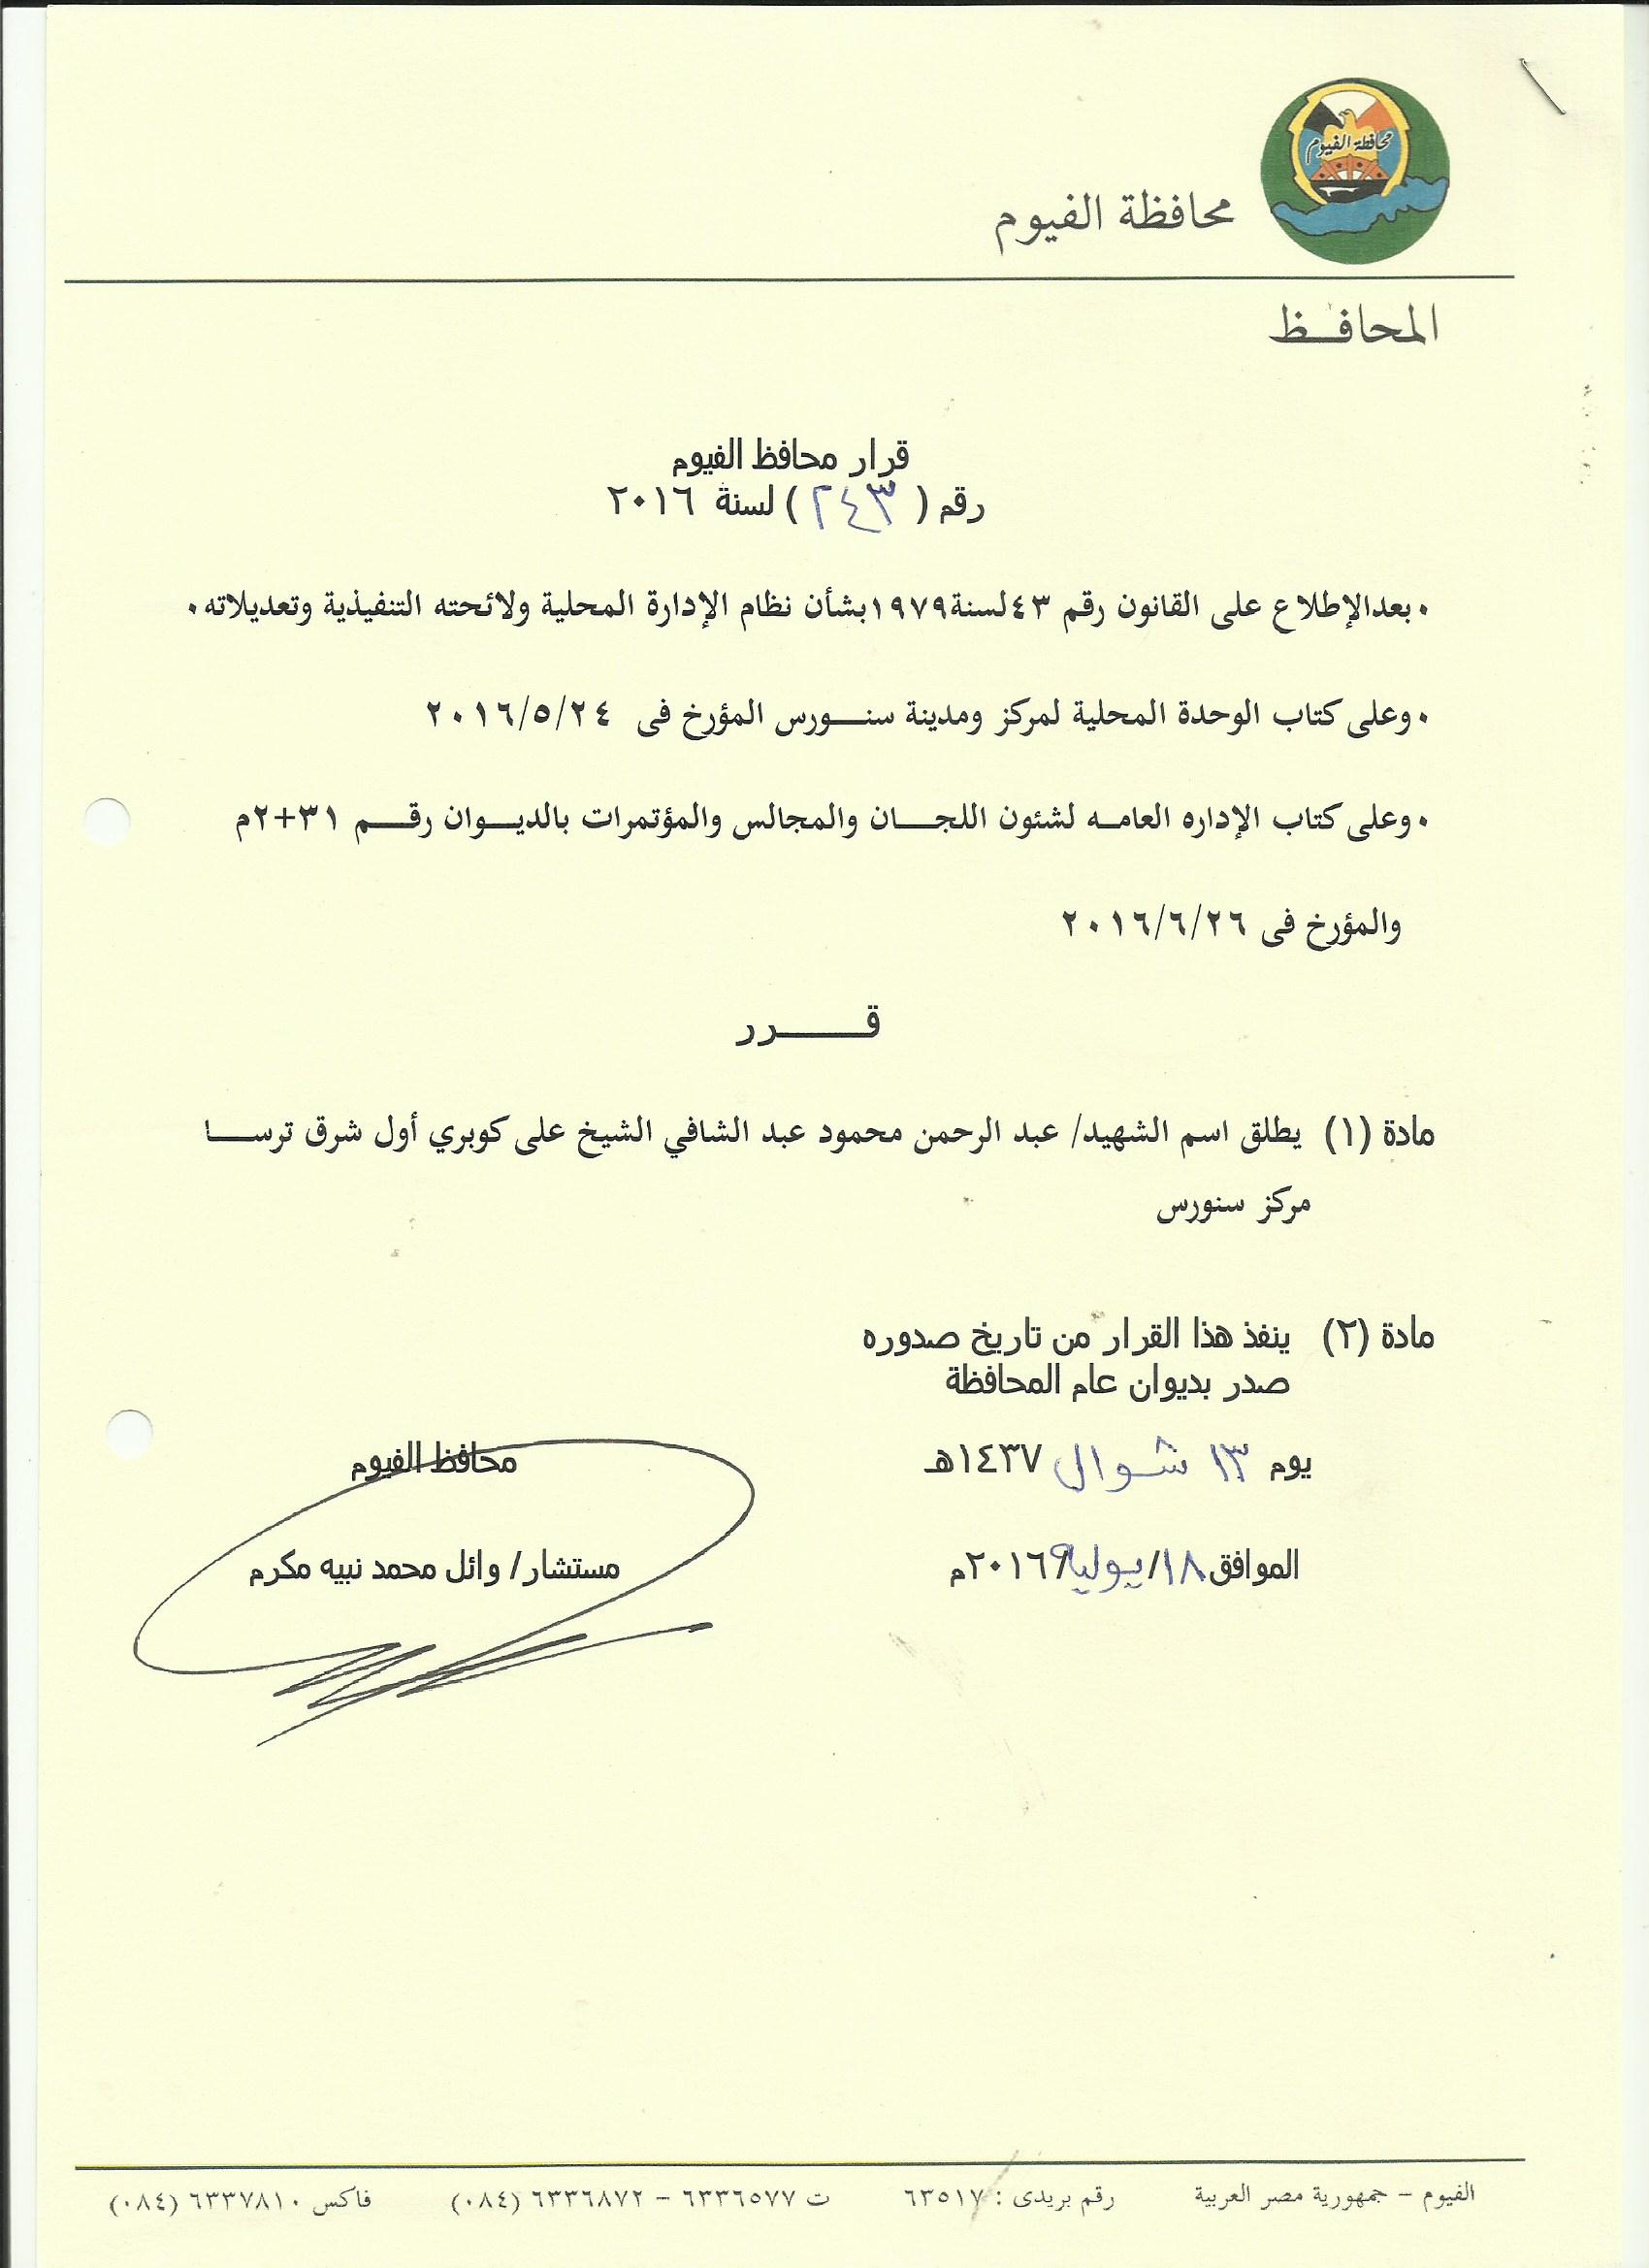 محافظة الفيوم
محافظة الفيوم
المحافــظ
قرار محافظ الفيوم
رقم ( ٢٤٣ ) لسنة ٢٠١٦
• بعدالإطلاع على القانون رقم ٤٣لسنة١٩٧٩بشأن نظام الإدارة المحلية ولائحته التنفيذية وتعديلاته •
• وعلى كتاب الوحدة المحلية لمركز ومدينة سنـــورس المؤرخ فى ٢٠١٦/٥/٢٤
• وعلى كتاب الإداره العامـه لشئون اللجـــان والمجالس والمؤتمرات بالديــوان رقـــم ٣١+٢م
والمؤرخ فى ٢٠١٦/٦/٢٦
قـــــــرر
مادة (١) يطلق اسم الشهيد/ عبد الرحمن محمود عبد الشافي الشيخ على كوبري أول شرق ترســـا
مركز سنورس
مادة (٢) ينفذ هذا القرار من تاريخ صدوره
صدر بديوان عام المحافظة
يوم ١٣ شوال ١٤٣٧هـ
محافظ الفيوم
الموافق ١٨/يوليه/٢٠١٦م
مستشار/ وائل محمد نبيه مكرم
الفيوم – جمهورية مصر العربية رقم بريدى : ٦٣٥١٧ ت ٦٣٣٦٥٧٧ – ٦٣٣٦٨٧٢ (٠٨٤) فاكس ٦٣٣٧٨١٠ (٠٨٤)